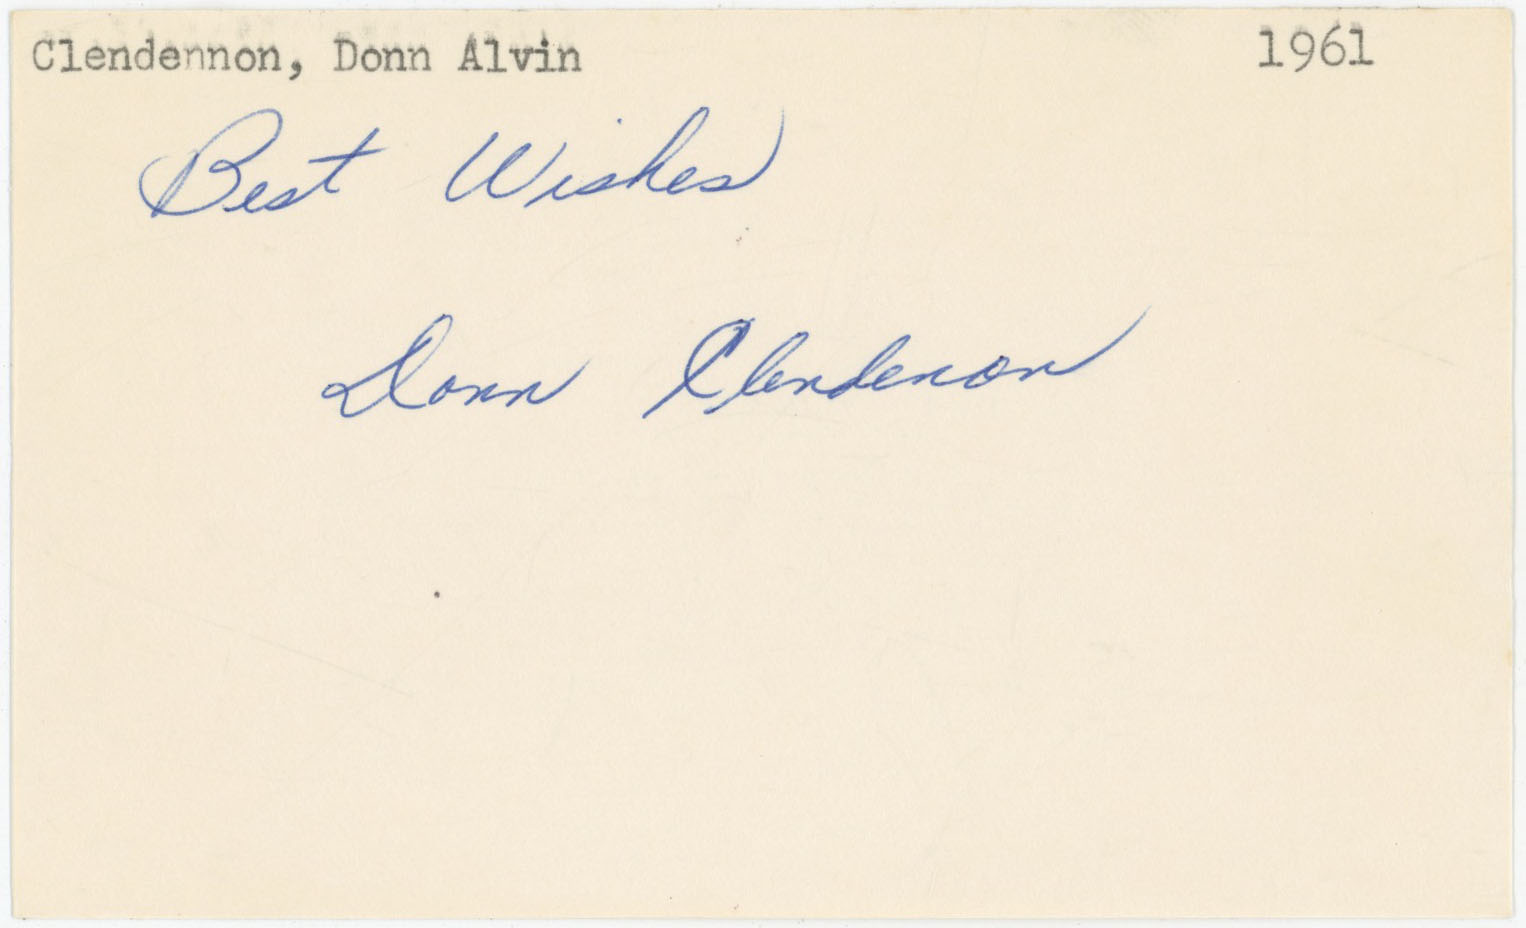 Clendennon, Donn Alvin 1961
Best Wishes
Donn Clendenon